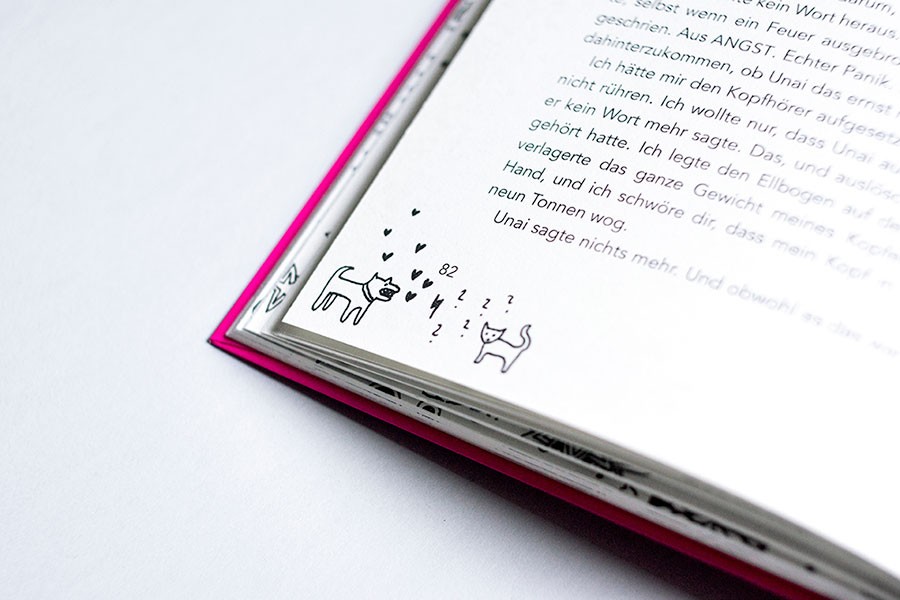 kein Wort heraus.
selbst wenn ein Feuer
geschrien. Aus ANGST. Echter Panik.
dahinterzukommen, ob Unai das ernst
Ich hätte mir den Kopfhörer
nicht rühren. Ich wollte nur, dass Unai
er kein Wort mehr sagte. Das, und
gehört hatte. Ich legte den Ellbogen auf
verlagerte das ganze Gewicht meines
Hand, und ich schwöre dir, dass mein Kopf
neun Tonnen wog.
Unai sagte nichts mehr. Und obwohl es das
82
? ? ?
? ?